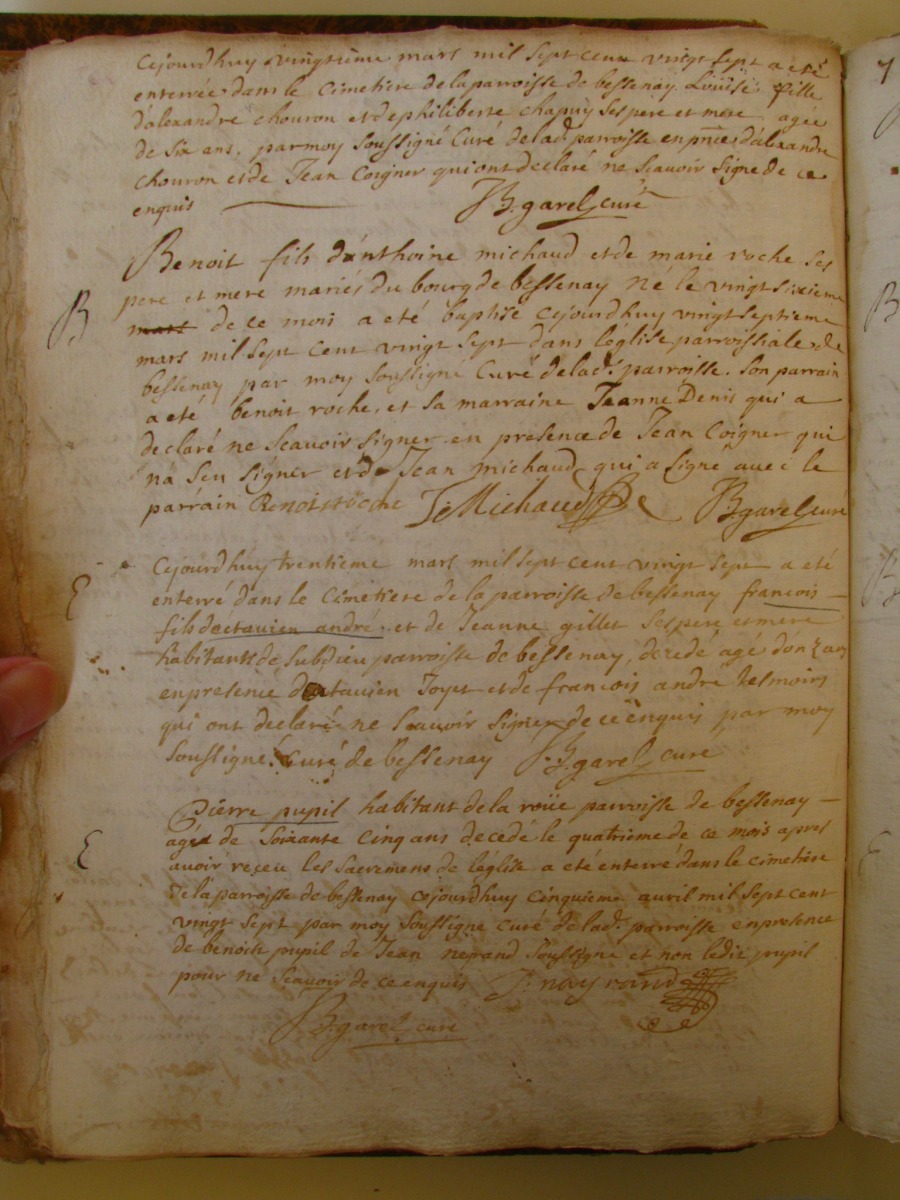 Cejourdhuy vingtième mars mil sept cent vingt sept a eté
enterrée dans le cimetiere de la parroisse de bessenay Louise fille
d'alexandre chouron et de philiberte chapuy ses pere et mere agée
de six ans. par moy soussigné Curé de lad. parroisse en pnce d'alexandre
chouron et de Jean Coigner qui ont declaré ne scavoir signé de ce
enquis JB. garel curé
Benoit fils d'anthoine michaud et de marie roche ses
pere et mere mariés du bourg de bessenay né le vingt sixieme
B
mars de ce mois a eté baptisé cejourdhuy vingt septieme
mars mil sept cent vingt sept dans l'églisse parroissiale de
bessenay par moy soussigné Curé de lad. parroisse. son parrain
a eté benoit roche, et sa marraine Jeanne Denis qui a
declaré ne scavoir signer en presence de Jean Coigner qui
na sçu signer et de Jean michaud qui a signé avec le
parrain Benoist roche J Michaud JB garel curé
Cejourdhuy trentieme mars mil sept cent vingt sept a eté
E
enterré dans le cimetiere de la parroisse de bessenay francois
fils doctavien andre et de Jeanne gillet ses pere et mere
habitants de subdieu parroisse de bessenay, decedé agé d'onz ans
en presence d'octavien Joyet et de francois andré tesmoins
qui ont declaré ne scavoir signer de ce enquis par moy
soussigné. Curé de bessenay JB. garel cure
Pierre pupil habitant de la roüe parroisse de bessenay
E
agé de soixante cinq ans decedé le quatrieme de ce mois apres
avoir receu les sacremens de leglise a eté enterré dans le cimetiere
de la parroisse de bessenay cejourdhuy cinquieme avril mil sept cent
vingt sept par moy soussigné curé de lad. parroisse en presence
de benoit pupil de Jean negrand soussigné et non ledit pupil
pour ne scavoir de ce enquis J. nayrand
JB. garel cure